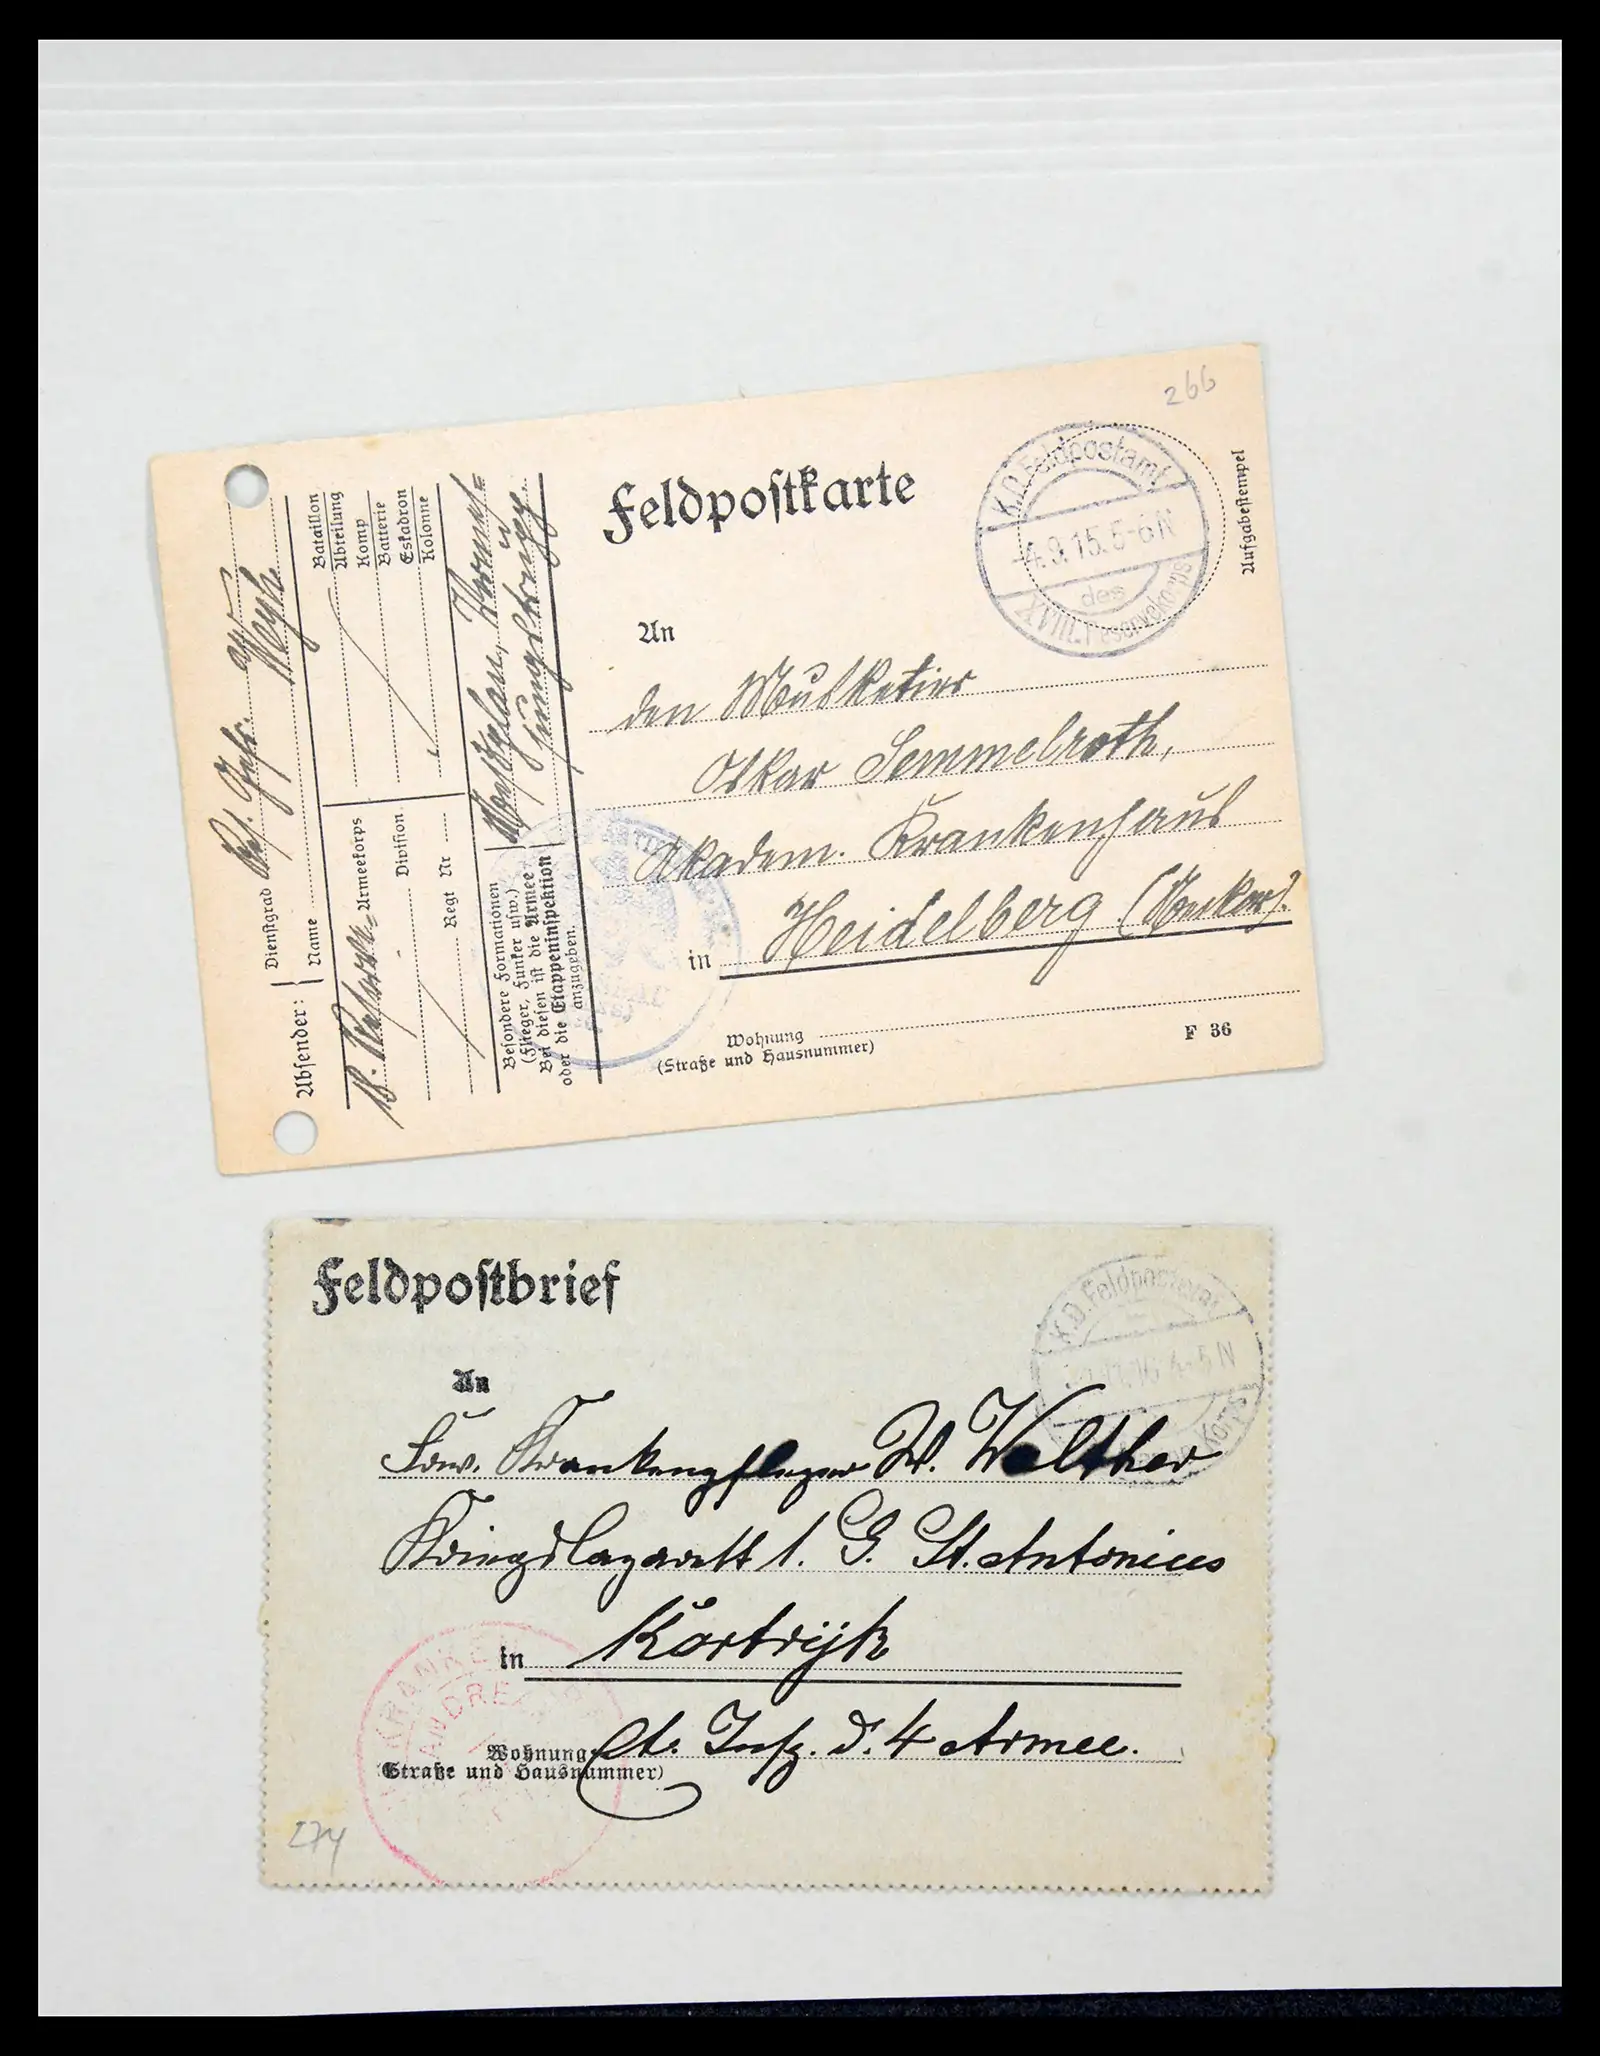 266
Feldpostkarte
K.D. Feldpostamt
-4.9.15.5-6N
des
XVIII. Reservekorps
Aufgabestempel
An
den Musketier
Oskar Semmelroth,
Akadem. Krankenhaus
in Heidelberg (Neckar).
Wohnung
(Straße und Hausnummer)
F 36
Absender:
Dienstgrad Gefr.
Name
18. Reserve- Armeekorps
Division
Regt Nr
Bataillon
Abteilung
Komp
Batterie
Eskadron
Kolonne
Besondere Formationen
(Flieger, Funker usw.)
Bei diesen ist die Armee
oder die Etappeninspektion
anzugeben.
Feldpostbrief
K.D. Feldpost
4-5N
Korps
An
Krankenpfleger W. Walther
Kriegslazarett 1. G. St. Antonius
in Kortrijk
Et. Insp. d. 4 Armee.
Wohnung
(Straße und Hausnummer)
KRANKEN
274